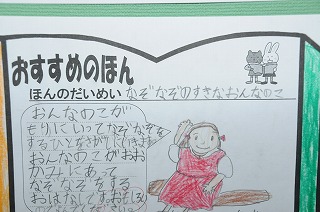 おすすめのほん
ほんのだいめい なぞなぞのすきなおんなのこ
おんなのこが
もりにいってなぞなぞを
するひとをさがしにいきます
おんなのこがおお
かみにあって
なぞなぞをする
おはなしです。